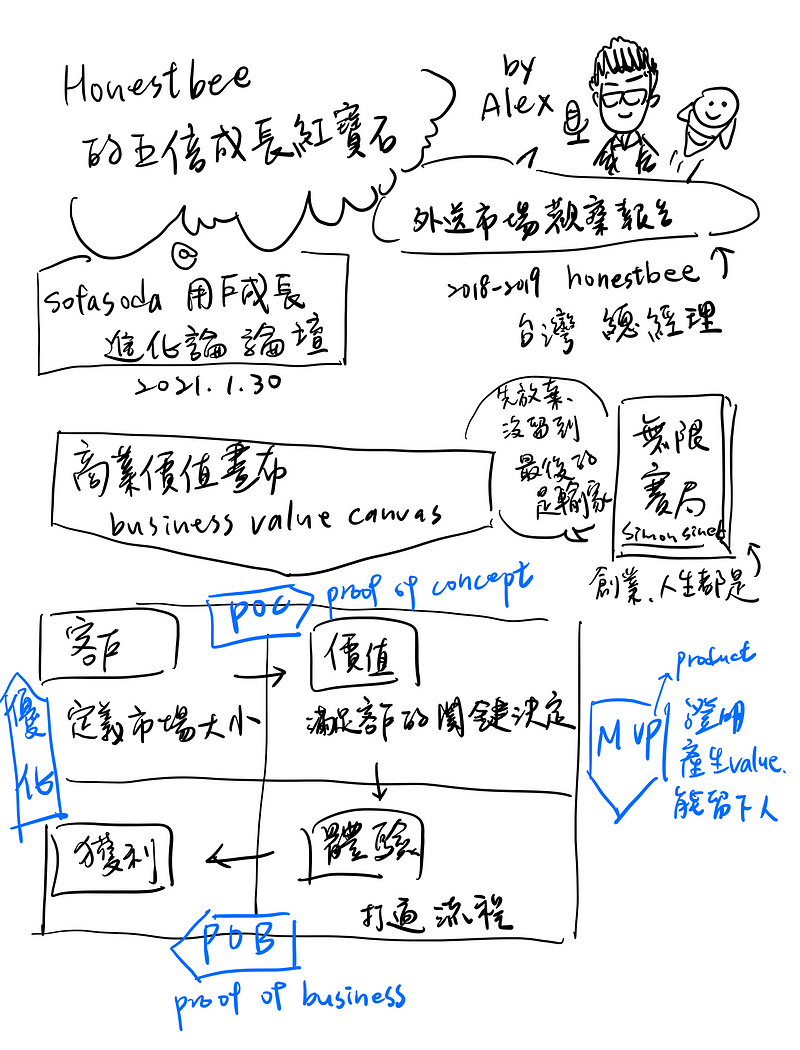 Honestbee
的五倍成長紅寶石
by
Alex
外送市場觀察報告
@
sofasoda 用戶成長
進化論論壇
2021.1.30
2018-2019 honestbee
台灣 總經理
先放棄、
沒留到
最後的
是輸家
無限
賽局
Simon sinek
創業、人生都是
商業價值畫布
business value canvas
POC
proof of concept
客戶
價值
定義市場大小
滿足客戶的關鍵決定
優
化
MVP
product
證明
產生value.
能留下人
獲利
體驗
打通流程
POB
proof of business